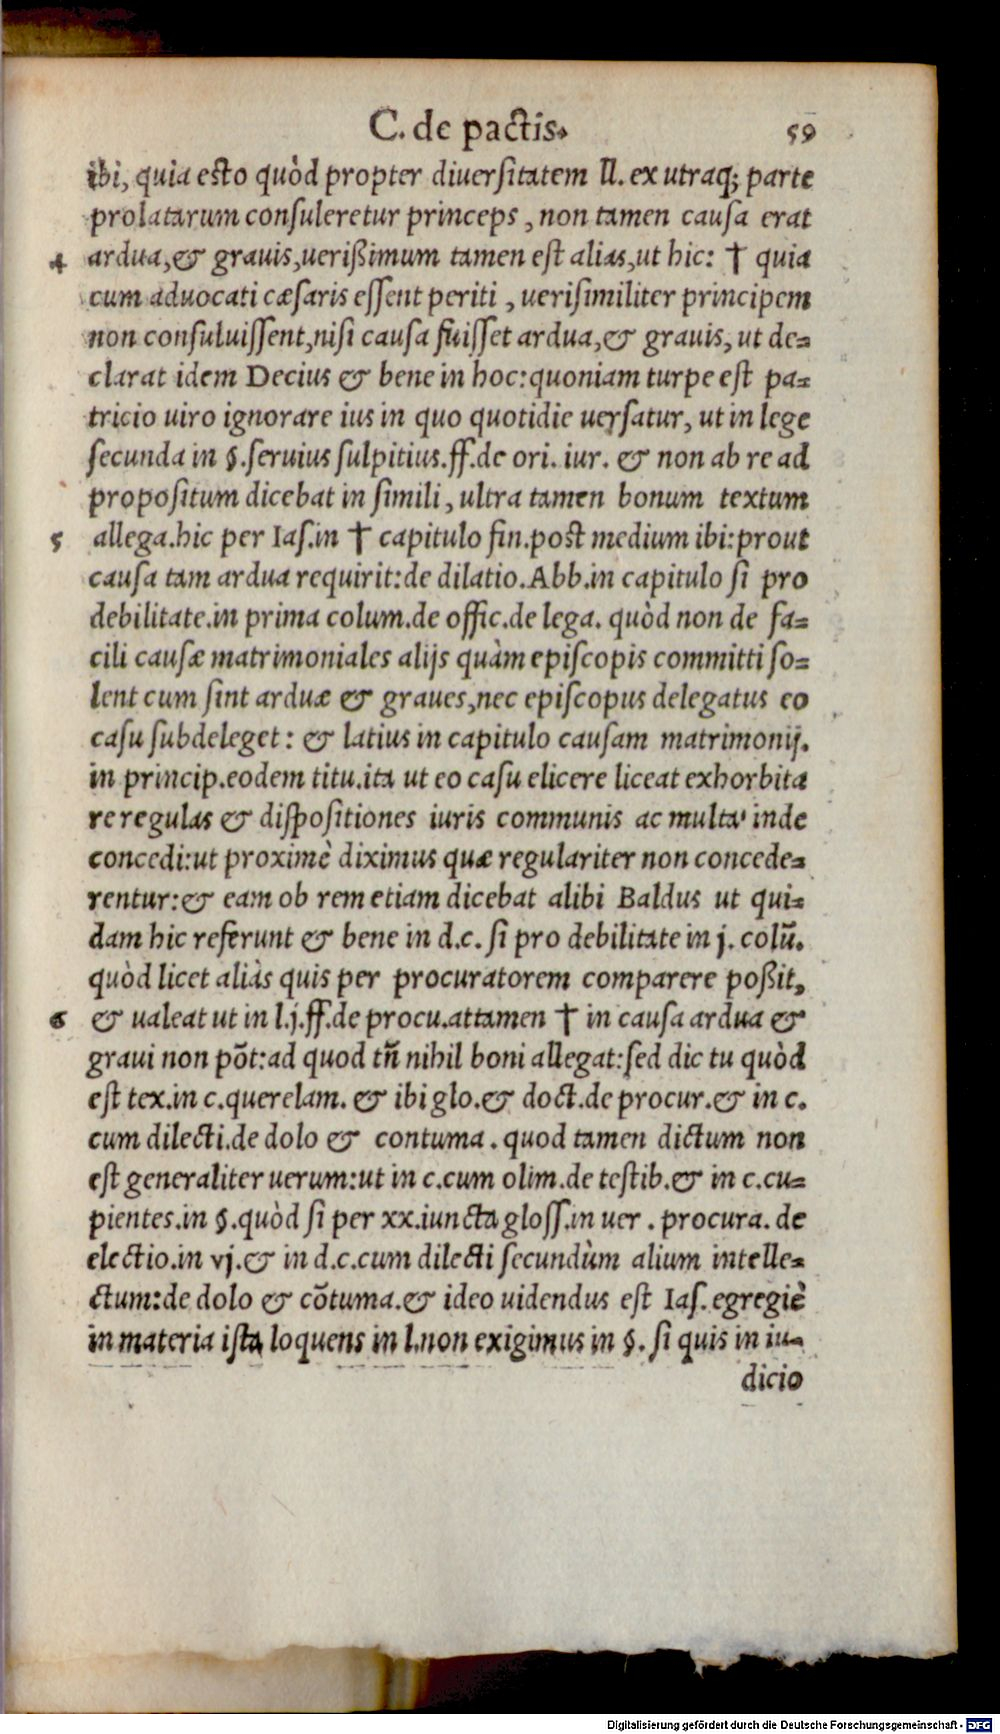 C. de pactis. 59
ibi, quia esto quòd propter diuersitatem ll. ex utraq; parte
prolatarum consuleretur princeps, non tamen causa erat
4 ardua, & grauis, uerißimum tamen est alias, ut hic: † quia
cum aduocati cæsaris essent periti, uerisimiliter principem
non consuluissent, nisi causa fuisset ardua, & grauis, ut de-
clarat idem Decius & bene in hoc: quoniam turpe est pa-
tricio uiro ignorare ius in quo quotidie uersatur, ut in lege
secunda in §. seruius sulpitius. ff. de ori. iur. & non ab re ad
propositum dicebat in simili, ultra tamen bonum textum
5 allega. hic per Ias. in † capitulo fin. post medium ibi: prout
causa tam ardua requirit: de dilatio. Abb. in capitulo si pro
debilitate. in prima colum. de offic. de lega. quòd non de fa-
cili causæ matrimoniales alijs quàm episcopis committi so-
lent cum sint arduæ & graues, nec episcopus delegatus eo
casu subdeleget: & latius in capitulo causam matrimonij.
in princip. eodem titu. ita ut eo casu elicere liceat exhorbita
re regulas & dispositiones iuris communis ac multa' inde
concedi: ut proximè diximus quæ regulariter non concede-
rentur: & eam ob rem etiam dicebat alibi Baldus ut qui-
dam hic referunt & bene in d. c. si pro debilitate in j. colū.
quòd licet aliàs quis per procuratorem comparere poßit,
6 & ualeat ut in l. j. ff. de procu. attamen † in causa ardua &
graui non põt: ad quod tñ nihil boni allegat: sed dic tu quòd
est tex. in c. querelam. & ibi glo. & doct. de procur. & in c.
cum dilecti. de dolo & contuma. quod tamen dictum non
est generaliter uerum: ut in c. cum olim. de testib. & in c. cu-
pientes. in §. quòd si per xx. iuncta gloss. in uer. procura. de
electio. in vj. & in d. c. cum dilecti secundùm alium intelle-
ctum: de dolo & cõtuma. & ideo uidendus est Ias. egregiè
in materia ista loquens in l. non exigimus in §. si quis in iu-
dicio
Digitalisierung gefördert durch die Deutsche Forschungsgemeinschaft - DFG